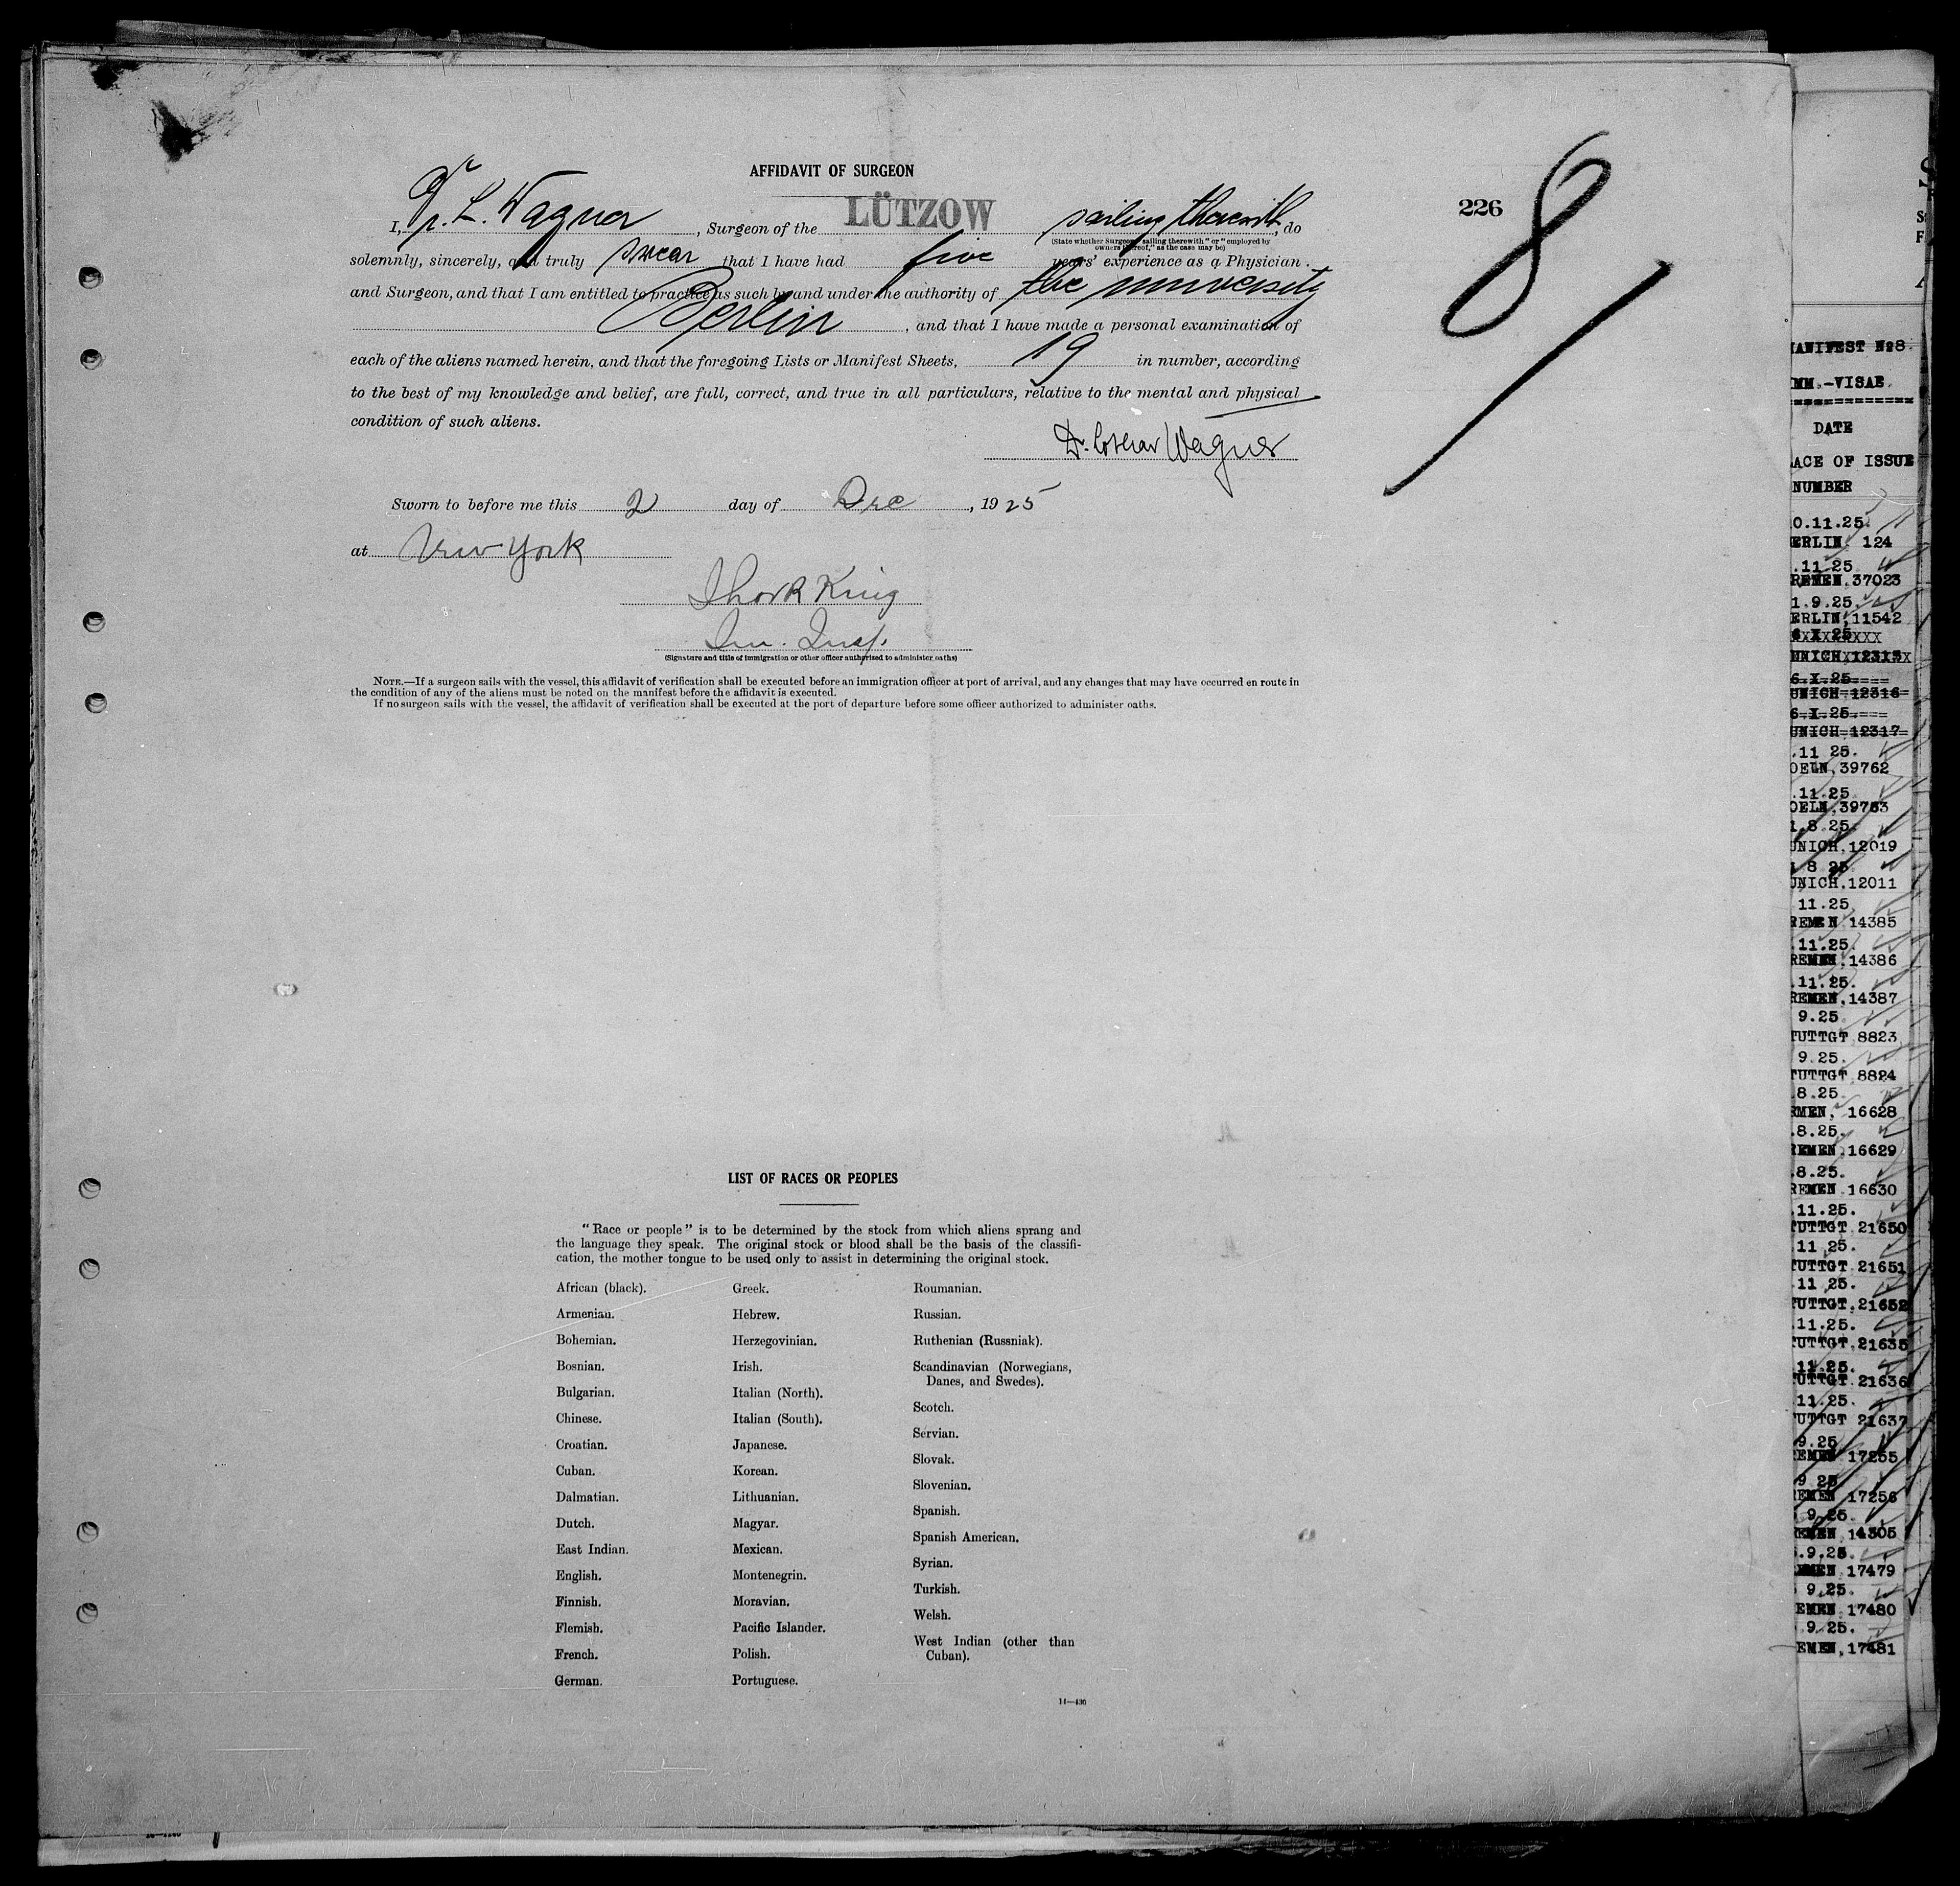 AFFIDAVIT OF SURGEON
226
8
I, Dr. L. Wagner, Surgeon of the LÜTZOW sailing therewith, do
(State whether Surgeon "sailing therewith" or "employed by
owners thereof," as the case may be)
solemnly, sincerely, and truly swear that I have had five years' experience as a Physician
and Surgeon, and that I am entitled to practice as such by and under the authority of the university
Berlin, and that I have made a personal examination of
each of the aliens named herein, and that the foregoing Lists or Manifest Sheets, 19 in number, according
to the best of my knowledge and belief, are full, correct, and true in all particulars, relative to the mental and physical
condition of such aliens.
Dr. Lothar Wagner
Sworn to before me this 2 day of Dec, 1925
at New York
King
Im. Insp.
(Signature and title of immigration or other officer authorized to administer oaths)
NOTE.—If a surgeon sails with the vessel, this affidavit of verification shall be executed before an immigration officer at port of arrival, and any changes that may have occurred en route in
the condition of any of the aliens must be noted on the manifest before the affidavit is executed.
If no surgeon sails with the vessel, the affidavit of verification shall be executed at the port of departure before some officer authorized to administer oaths.
LIST OF RACES OR PEOPLES
"Race or people" is to be determined by the stock from which aliens sprang and
the language they speak. The original stock or blood shall be the basis of the classifi-
cation, the mother tongue to be used only to assist in determining the original stock.
African (black).
Armenian.
Bohemian.
Bosnian.
Bulgarian.
Chinese.
Croatian.
Cuban.
Dalmatian.
Dutch.
East Indian.
English.
Finnish.
Flemish.
French.
German.
Greek.
Hebrew.
Herzegovinian.
Irish.
Italian (North).
Italian (South).
Japanese.
Korean.
Lithuanian.
Magyar.
Mexican.
Montenegrin.
Moravian.
Pacific Islander.
Polish.
Portuguese.
Roumanian.
Russian.
Ruthenian (Russniak).
Scandinavian (Norwegians,
Danes, and Swedes).
Scotch.
Servian.
Slovak.
Slovenian.
Spanish.
Spanish American.
Syrian.
Turkish.
Welsh.
West Indian (other than
Cuban).
14—430
ANIFEST №8.
MM.-VISAE.
DATE
ACE OF ISSUE
NUMBER
0.11.25.
ERLIN 124
.11.25
REMEN.37023
1.9.25.
ERLIN,11542
6 X 25
UNICH 12315
6.X.25
UNICH 12316
6 X 25
UNICH 12317
.11 25.
OELN,39762
.11.25
OELN,39763
1.8 25.
UNICH.12019
1 8 25
UNICH.12011
11.25
REMEN 14385
.11.25.
REMEN.14386
.11.25.
REMEN,14387
9.25
TUTTGT 8823
9.25.
TUTTGT 8824
.8.25.
RMEN, 16628
.8.25.
REMEN.16629
.8.25.
REMEN 16630
.11.25.
TUTTGT 21650
.11 25.
TUTTGT 21651
.11 25.
TUTTGT.21652
.11.25.
TUTTGT.21635
.11.25.
TUTTGT.21636
.11.25.
TUTTGT 21637
9.25
EMEN 17255
9 25
REMEN 17256
9.25.
EMEN 14305
.9.25.
EMEN 17479
9.25.
EMEN 17480
9.25.
EMEN,17481